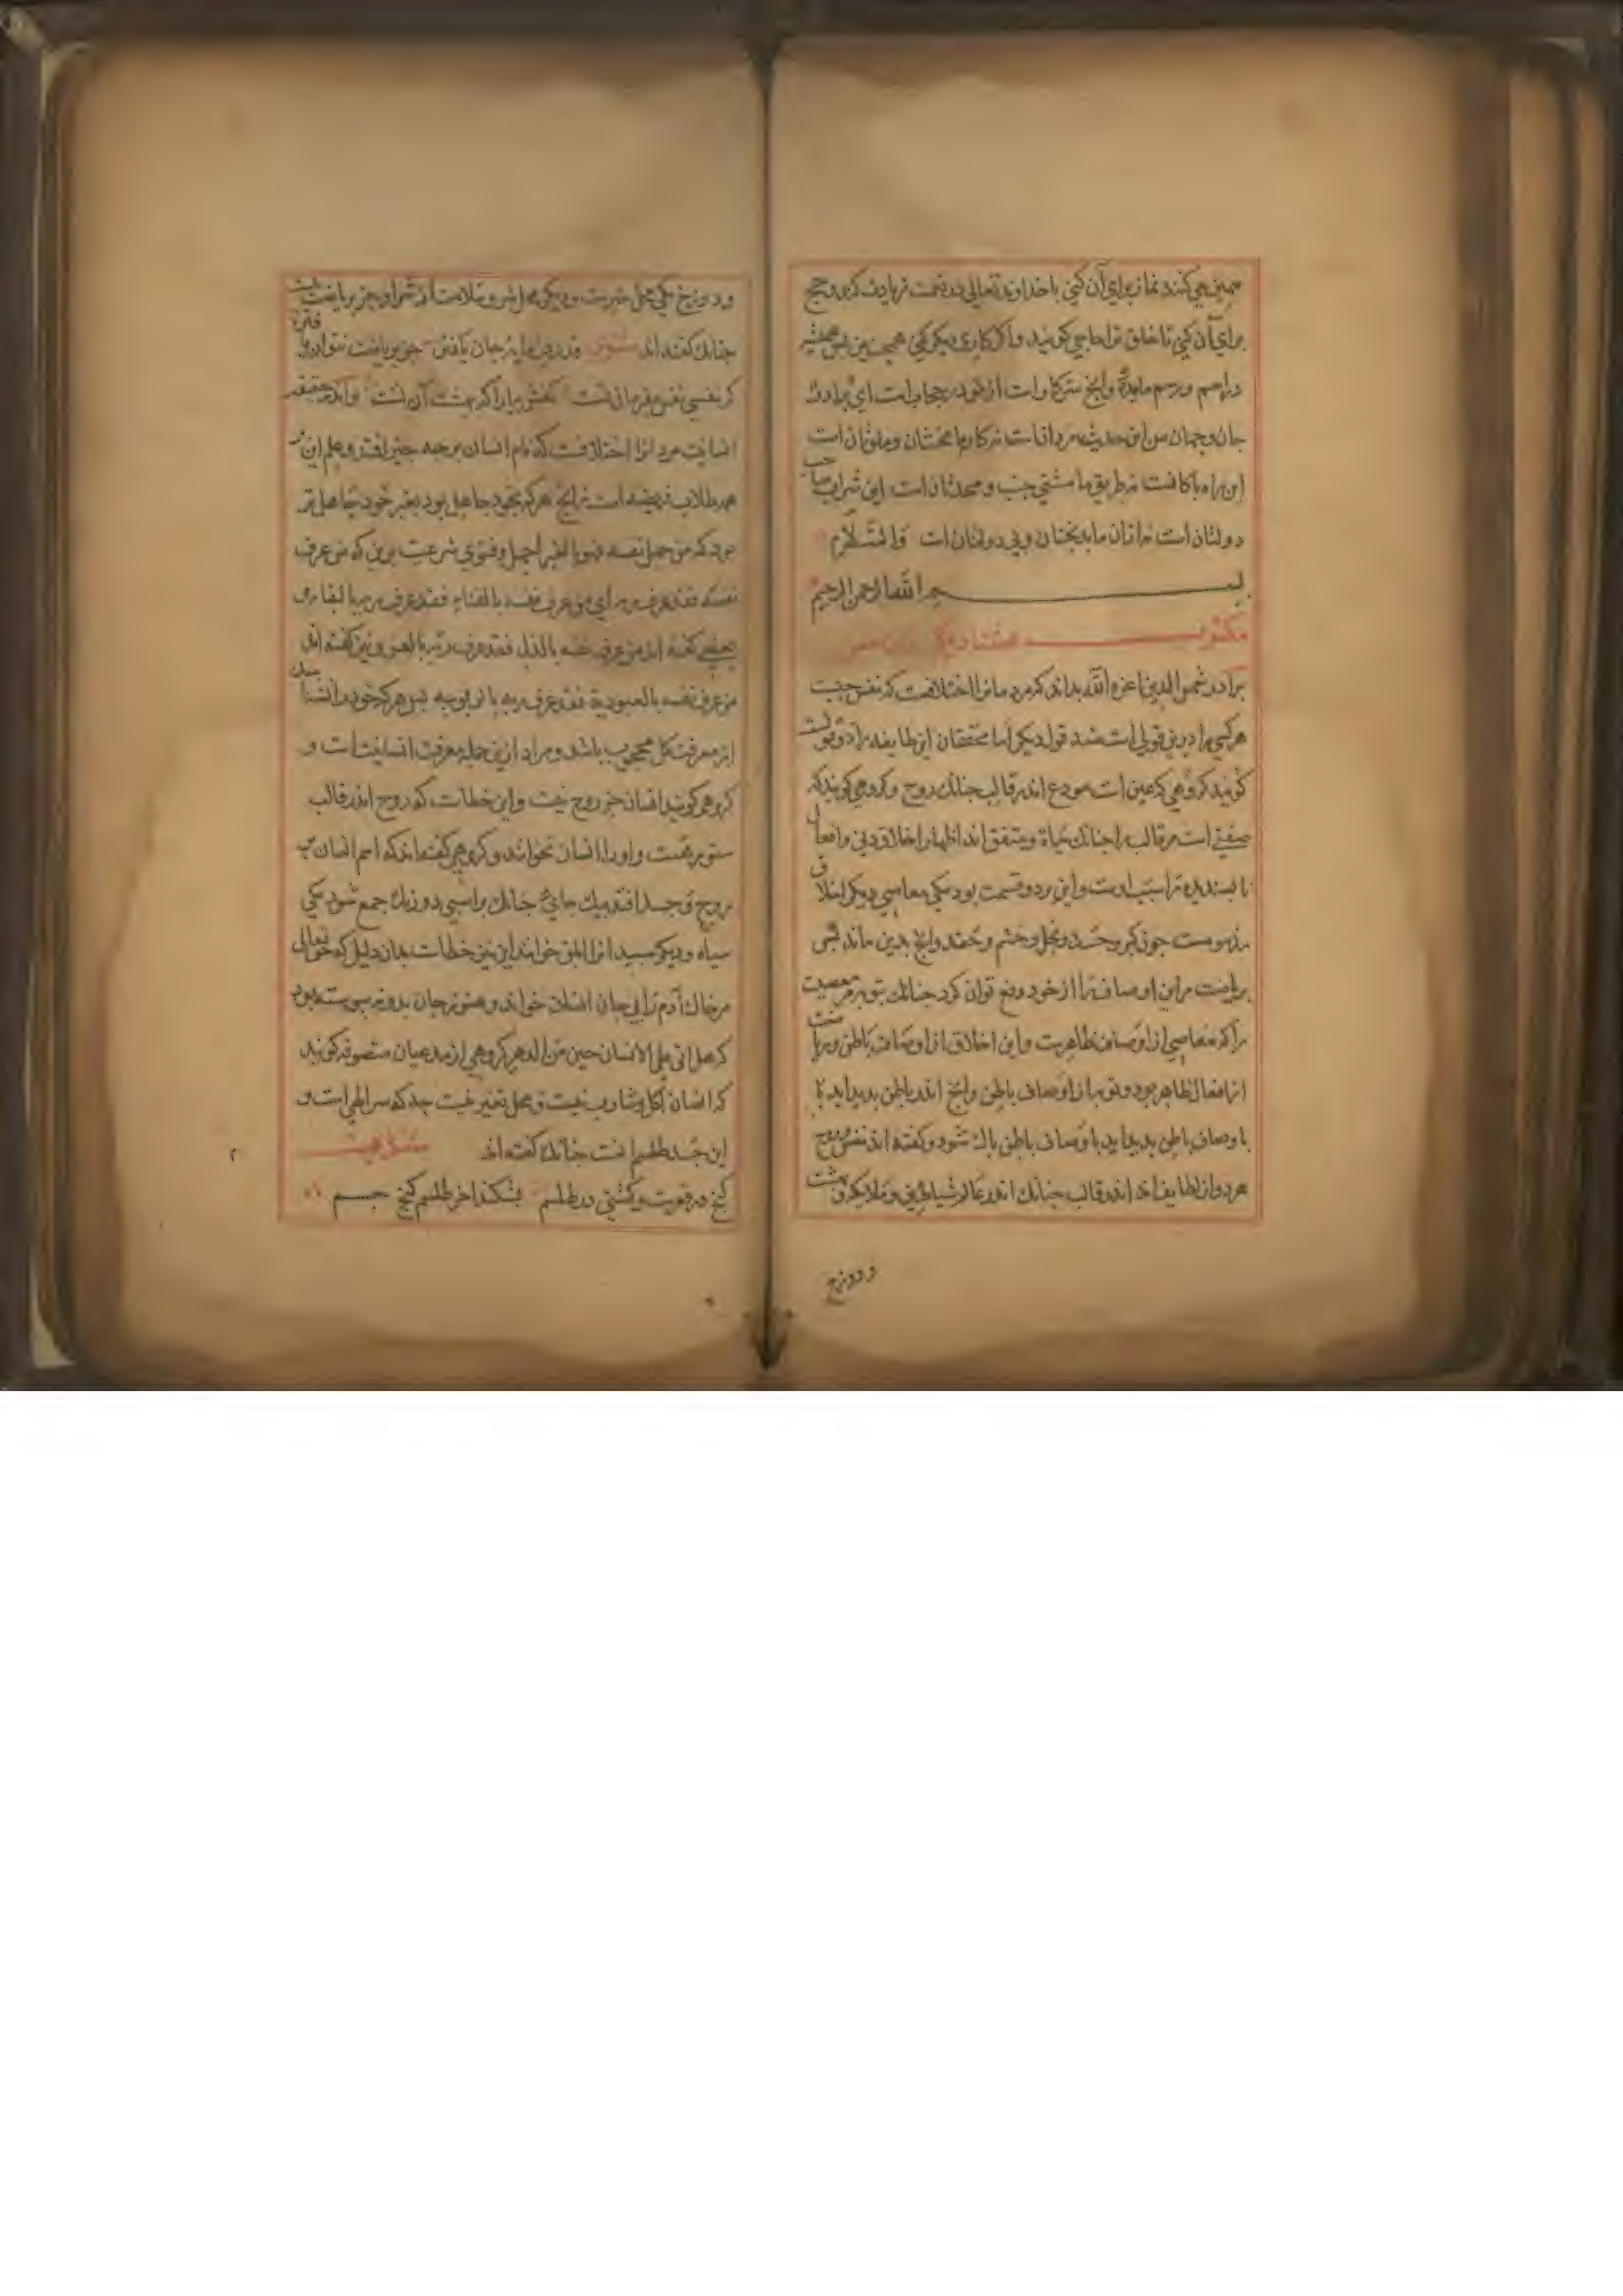 همین می کنند نماز برای آن کنی با خداوند تعالی در نعمت زیادت کند و حج
برای آن کنی تا خلق ترا حاجی گویند و اگر کاری دیگر کنی همچنین پس همیشه
در اسم و رسم مانده وانچ سر کار است از تو در حجاب است ای برادر
جان و جهان من این حدیث مردانست نه کار ما مخنثان و ملوثان است
این راه پاکانست نه طریق ما مشتی جنب و محدثان است این شراب صاحب
دولتان است نه ازان ما بدبختان و بی دولتان است والسلام
بسم الله الرحمن الرحیم
مکتوب هشتاد
برادر شمس الدین اعزه الله بداند که مردمانرا اختلافست که نفس چیست
هر کسی را درین قولی است ضد قول دیگر اما محققان این طایفه را دو قولست
گویند گروهی که عین است مودع اندر قالب چنانک روح و گروهی گویند که
صفتی است مر قالب را چنانک حیاة و متفق اند اظهار اخلاق دنی و افعال
ناپسندیده را سبب اوست و این بر دو قسمت بود یکی معاصی دیگر اخلاق
مذمومست چون کبر و حسد و بخل و خشم و حقد وانچ بدین ماند پس
بریاضت مر این اوصاف را از خود دفع توان کرد چنانک بتوبه مر معصیت
را که معاصی از اوصاف ظاهریت و این اخلاق از اوصاف باطن و ریاضت
از افعال ظاهر بود و توبه از اوصاف باطن وانچ اندر باطن پدید اید
باوصاف باطن پدید اید باوصاف باطن پاک شود و گفته اند نفس و روح
هر دو از لطایف اند اندر قالب چنانک اندر عالم شیاطین و ملایکه و بهشت
و دوزخ
و دوزخ یکی محل خیرست و دیگر محل شر و سلامت از شر او جز بریاضت نیست
چنانک گفته اند
کر نفسی نفس بفرمان تست کفش بیار آکه بهشت آن تست و اندر حقیقت
انسانیت مردمانرا اختلافست که نام انسان بر چه چیز افتد و علم این بر
همه طلاب فریضه است زانچ هر که بخود جاهل بود بغیر خود جاهل تر
بود که من جهل نفسه فهو بالغیر اجهل و فتوی شرعت برین که من عرف
نفسه فقد عرف ربه ای من عرف نفسه بالفناء فقد عرف ربه بالبقاء و
بعضی گفته اند من عرف نفسه بالذل فقد عرف ربه بالعز و نیز گفته اند
من عرف نفسه بالعبودیة فقد عرف ربه بالربوبیه پس هر که خود را نشناسد
از معرفت کل محجوب باشد و مراد ازین جمله معرفت انسانیت است و
گروهی گویند انسان جز روح نیست و این خطاست که روح اندر قالب
ستور هست و او را انسان نخوانند و گروهی گفته اند که اسم انسان
بروح و جسد افتد بیک جای چنانک بر اسبی دو رنگ جمع شود یکی
سیاه و دیگر سپید انرا ابلق خوانند این نیز خطاست بدان دلیل که حق تعالی
مر خاک آدم را بی جان انسان خواند و هنوز جان بدو نه پیوسته بود
که هل اتی علی الانسان حین من الدهر گروهی از مدعیان متصوفه گویند
که انسان آکل و شارب نیست و محل تغیر نیست چه که سر الهی است و
این جسد طلسم انست چنانک گفته اند
گنج در قعرست و گیتی در طلسم بشکند اخر طلسم گنج جسم